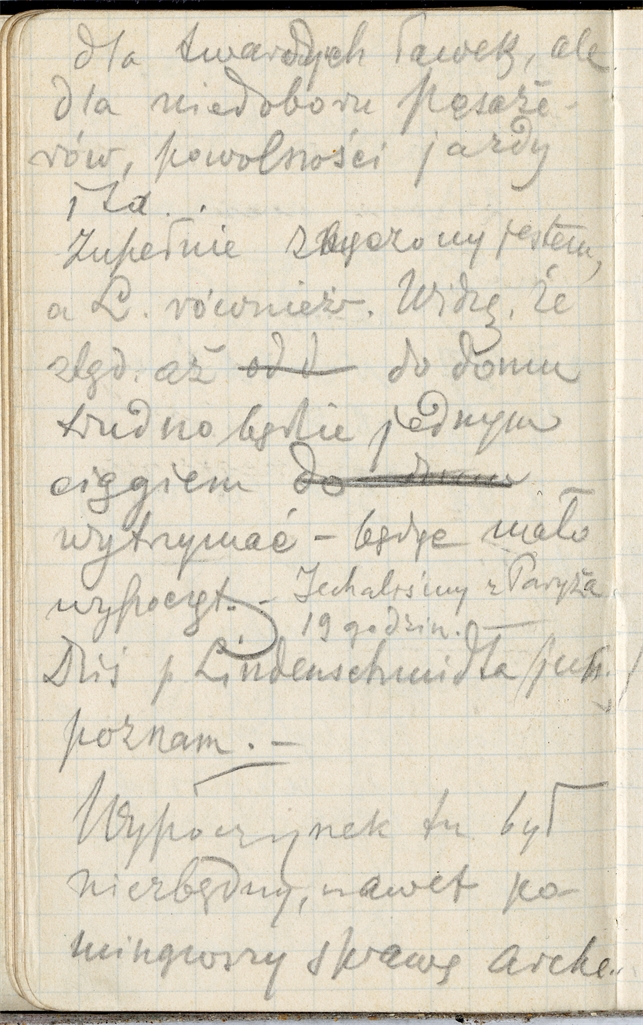 dla twardych ławek, ale
dla niedoboru pasaże-
rów, powolności jazdy
i td. .
Zupełnie zmęczony jestem,
a L. również. Widzę, że
stąd aż od d do domu
trudno będzie jednym
ciągiem do domu
wytrzymać – będąc mało
wypoczęt. – Jechaliśmy z Paryża
19 godzin. –
Dziś p Lindenschmidta (jun.)
poznam. –
Wypoczynek tu był
niezbędny, nawet po-
minąwszy sprawę arche..